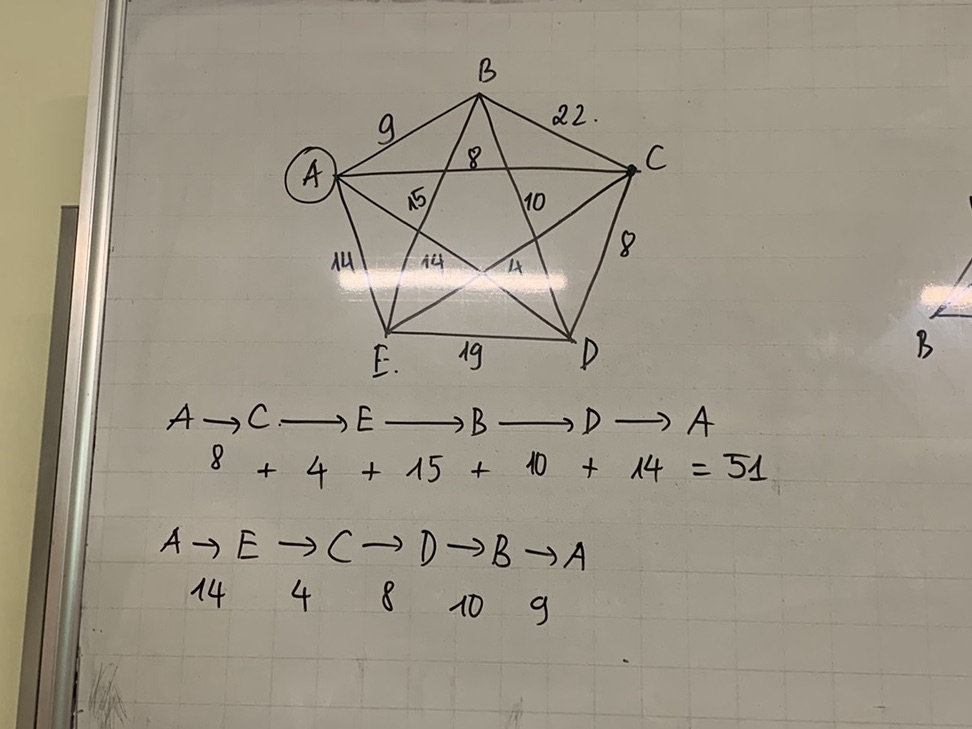 B
9
22.
A
8
C
15
10
14
14
4
8
E.
19
D
B
A → C → E → B → D → A
8 + 4 + 15 + 10 + 14 = 51
A → E → C → D → B → A
14 4 8 10 9